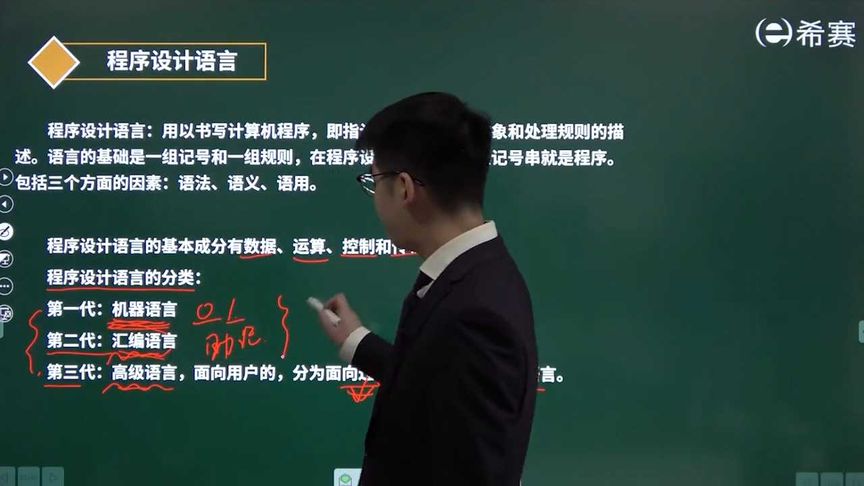 希赛
程序设计语言
程序设计语言：用以书写计算机程序，即指 象和处理规则的描
述。语言的基础是一组记号和一组规则，在程序设 记号串就是程序。
包括三个方面的因素：语法、语义、语用。
程序设计语言的基本成分有数据、运算、控制和
程序设计语言的分类：
第一代：机器语言 0 1
第二代：汇编语言 助记
第三代：高级语言，面向用户的，分为面向 言。